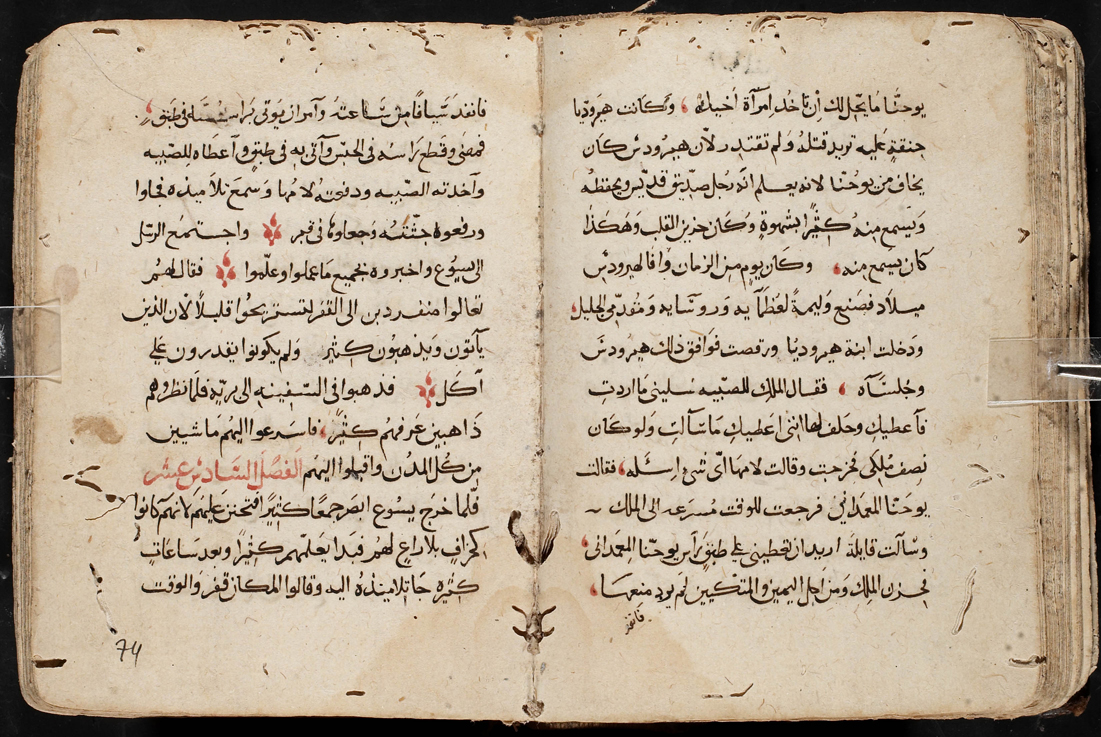 يوحنا ما يحل لك ان تاخد امرآة أخيك، وكانت هيروديا
حنقة عليه تريد قتله ولم تقتدر لان هيرودس كان
يخاف من يوحنا لانه يعلم انه رجل صديق قديس ويحفظه
ويسمع منه كثيرًا بشهوة وكان حزين القلب وهكذا
كان يسمع منه، وكان يوم من الزمان وافا لهيرودس
ميلاد فصنع وليمة لعظمآيه وروسايه ومقدمى الجليل،
ودخلت ابنة هيروديا ورقصت فوافق ذلك هيرودس
وجلسآه، فقال الملك للصبيه سلينى ما اردت
فآعطيك وحلف لها اننى اعطيك ما سآلت ولو كان
نصف ملكى فخرجت وقالت لامها اى شى اسئله، فقالت
يوحنا المعمدانى فرجعت للوقت مسرعه الى الملك
وسآلت قايلة اريد ان تعطينى على طبق رآس يوحنا المعمدانى،
فحزن الملك ومن اجل اليمين والمتكيين لم يرد منعها،
فانفد
فانفد سيافًا من ساعته وآمر ان يوتى براسه فى طبق،
فمضى وقطع راسه فى الحبس وآتى به فى طبق وآعطاه للصبيه
وآخدته الصبيه ودفعته لامها وسمع تلاميذه فجاوا
ورفعوه جثته وجعلوها فى قبر واجتمع الرسل
الى يسوع واخبروه بجميع ما عملوا وعلموا فقال لهم
تعالوا منفردين الى القفر لتستريحوا قليلًا لان الذين
يآتون ويذهبون كثير ولم يكونوا يقدرون على
آكل فذهبوا فى السفينه الى بريه فلما نظروهم
ذاهبين عرفهم كثيرً، فاسرعوا اليهم ماشيين
من كل المدن واقبلوا اليهم الفصل السادس عشر
فلما خرج يسوع ابصر جمعًا كثيرًا فتحنن عليهم لانهم كانوا
كخراف بلا راع لهم فبدا يعلمهم كثيرًا وبعد ساعات
كثره جا تلاميذه اليه وقالوا المكان قفر والوقت
74